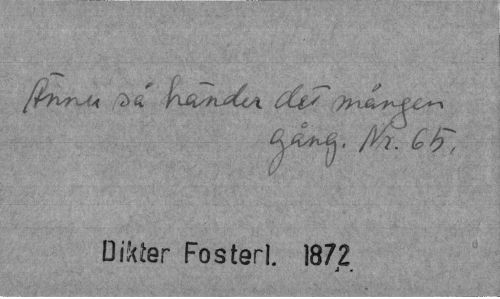 Ännu så händer det mången
gång. Nr. 65.
Dikter Fosterl. 1872.